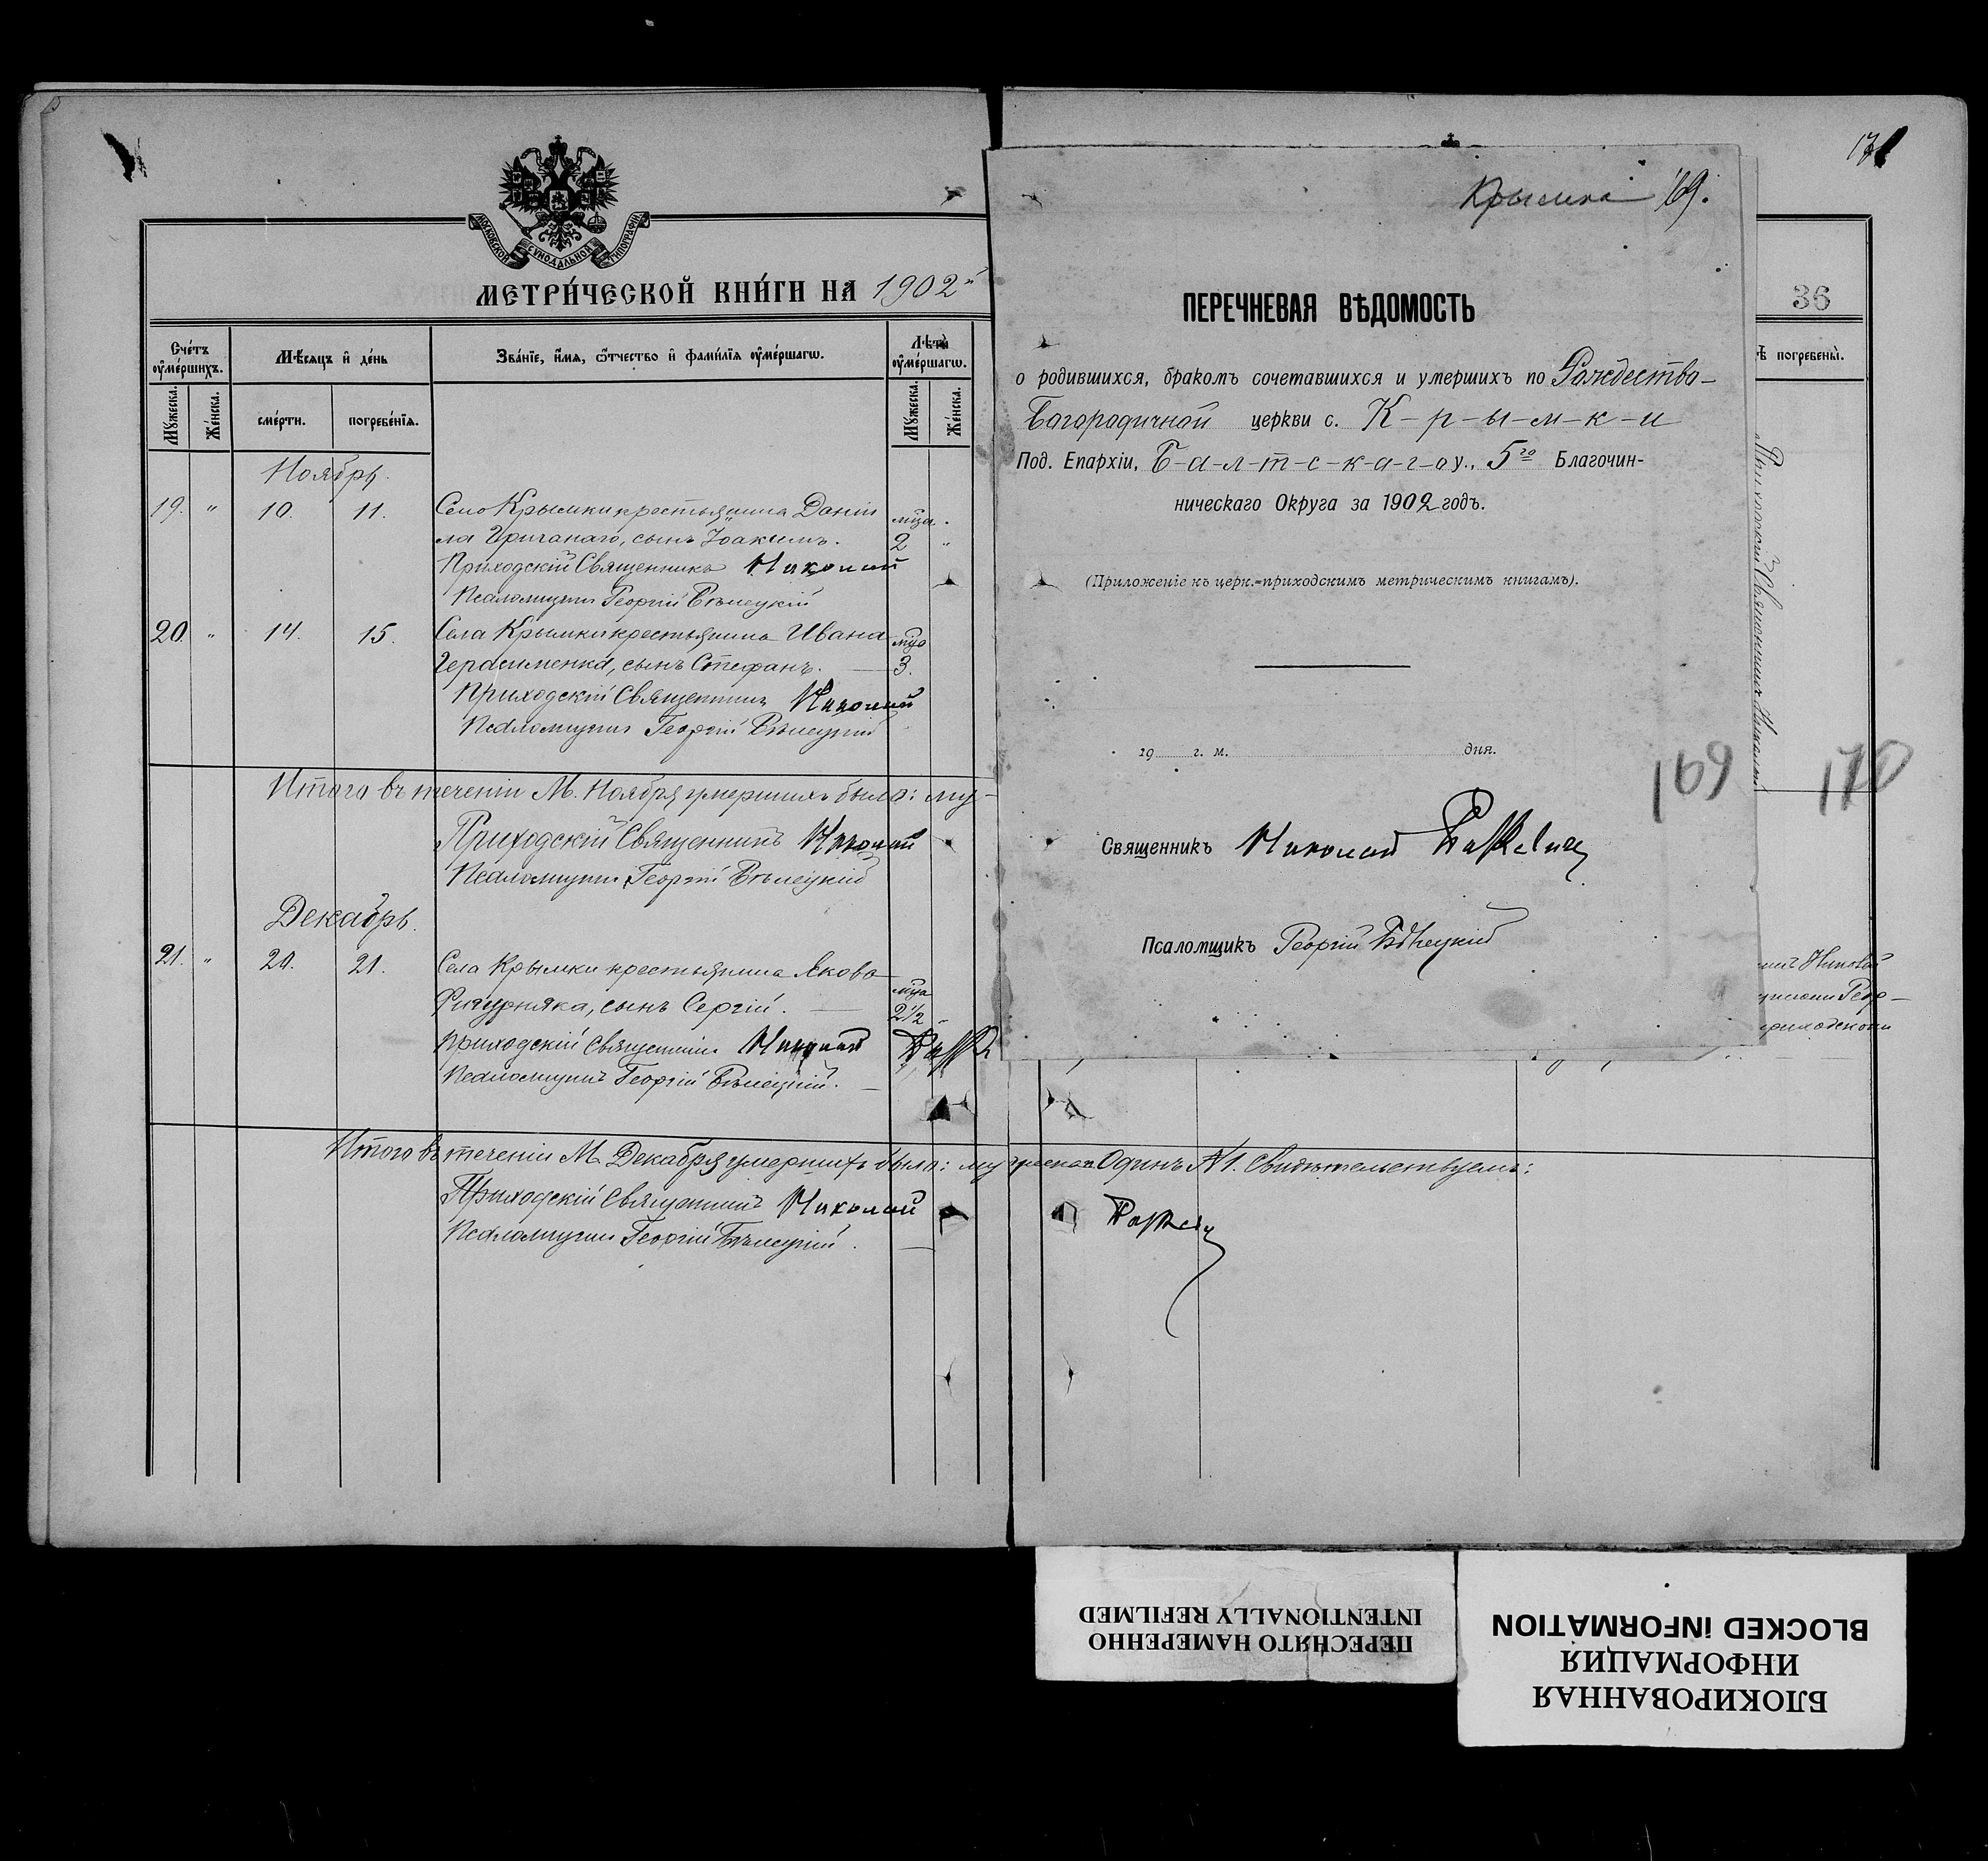 МОСКОВСКОЙ СѴНОДАЛЬНОЙ ТИПОГРАФІИ
МЕТРИ́ЧЕСКОЙ КНИ́ГИ НА 1902й
Сче́тъ ᲂу҆ме́ршихъ.
Мѣ́сяцъ и҆ де́нь
Зва́нїе, и҆́мѧ, ѻ҆́тчество и҆ фами́лїѧ ᲂу҆ме́ршагѡ.
Лѣ́та ᲂу҆ме́ршагѡ.
Мꙋ́жеска.
Же́нска.
сме́рти.
погребе́нїѧ.
Мꙋ́жеска.
Же́нска.
Ноябрь.
19. " 10. 11. Село Крымки крестьянина Даніи
ла, сынъ Іоакимъ. 2 "
Приходскій Священникъ Николай
Псаломщикъ Георгій Бѣлецкій
20 " 14. 15. Села Крымки крестьянина Ивана
Герасименка, сынъ Стефанъ. — 3.
Приходскій Священникъ Николай
Псаломщикъ Георгій Бѣлецкій
Итого въ теченіи М. Ноября умершихъ было: му-
Приходскій Священникъ Николай
Псаломщикъ Георгій Бѣлецкій
Декабрь.
21. " 20. 21. Села Крымки крестьянина Якова
сынъ Сергій. — 2½ "
Приходскій Священникъ Николай
Псаломщикъ Георгій Бѣлецкій. —
Итого въ теченіи М. Декабря умершихъ было: му жеска Одинъ №1. Свидѣтельствуемъ:
Приходскій Священникъ Николай
Псаломщикъ Георгій Бѣлецкій. —
Крымка 169.
ПЕРЕЧНЕВАЯ ВѢДОМОСТЬ
о родившихся, бракомъ сочетавшихся и умершихъ по Рождество-
Богородичной церкви с. К-р-ы-м-к-и
Под. Епархіи, Б-а-л-т-с-к-а-г-о у., 5го Благочин-
ническаго Округа за 1902 годъ.
(Приложеніе къ церк.=приходскимъ метрическимъ книгамъ).
19 г. м. дня.
Священникъ Николай
Псаломщикъ Георгій Бѣлецкій
169
170
36
ѣ погребены̀.
Приходскій Священникъ Николай
ПЕРЕСНЯТО НАМЕРЕННО
INTENTIONALLY REFILMED
БЛОКИРОВАННАЯ
ИНФОРМАЦИЯ
BLOCKED INFORMATION